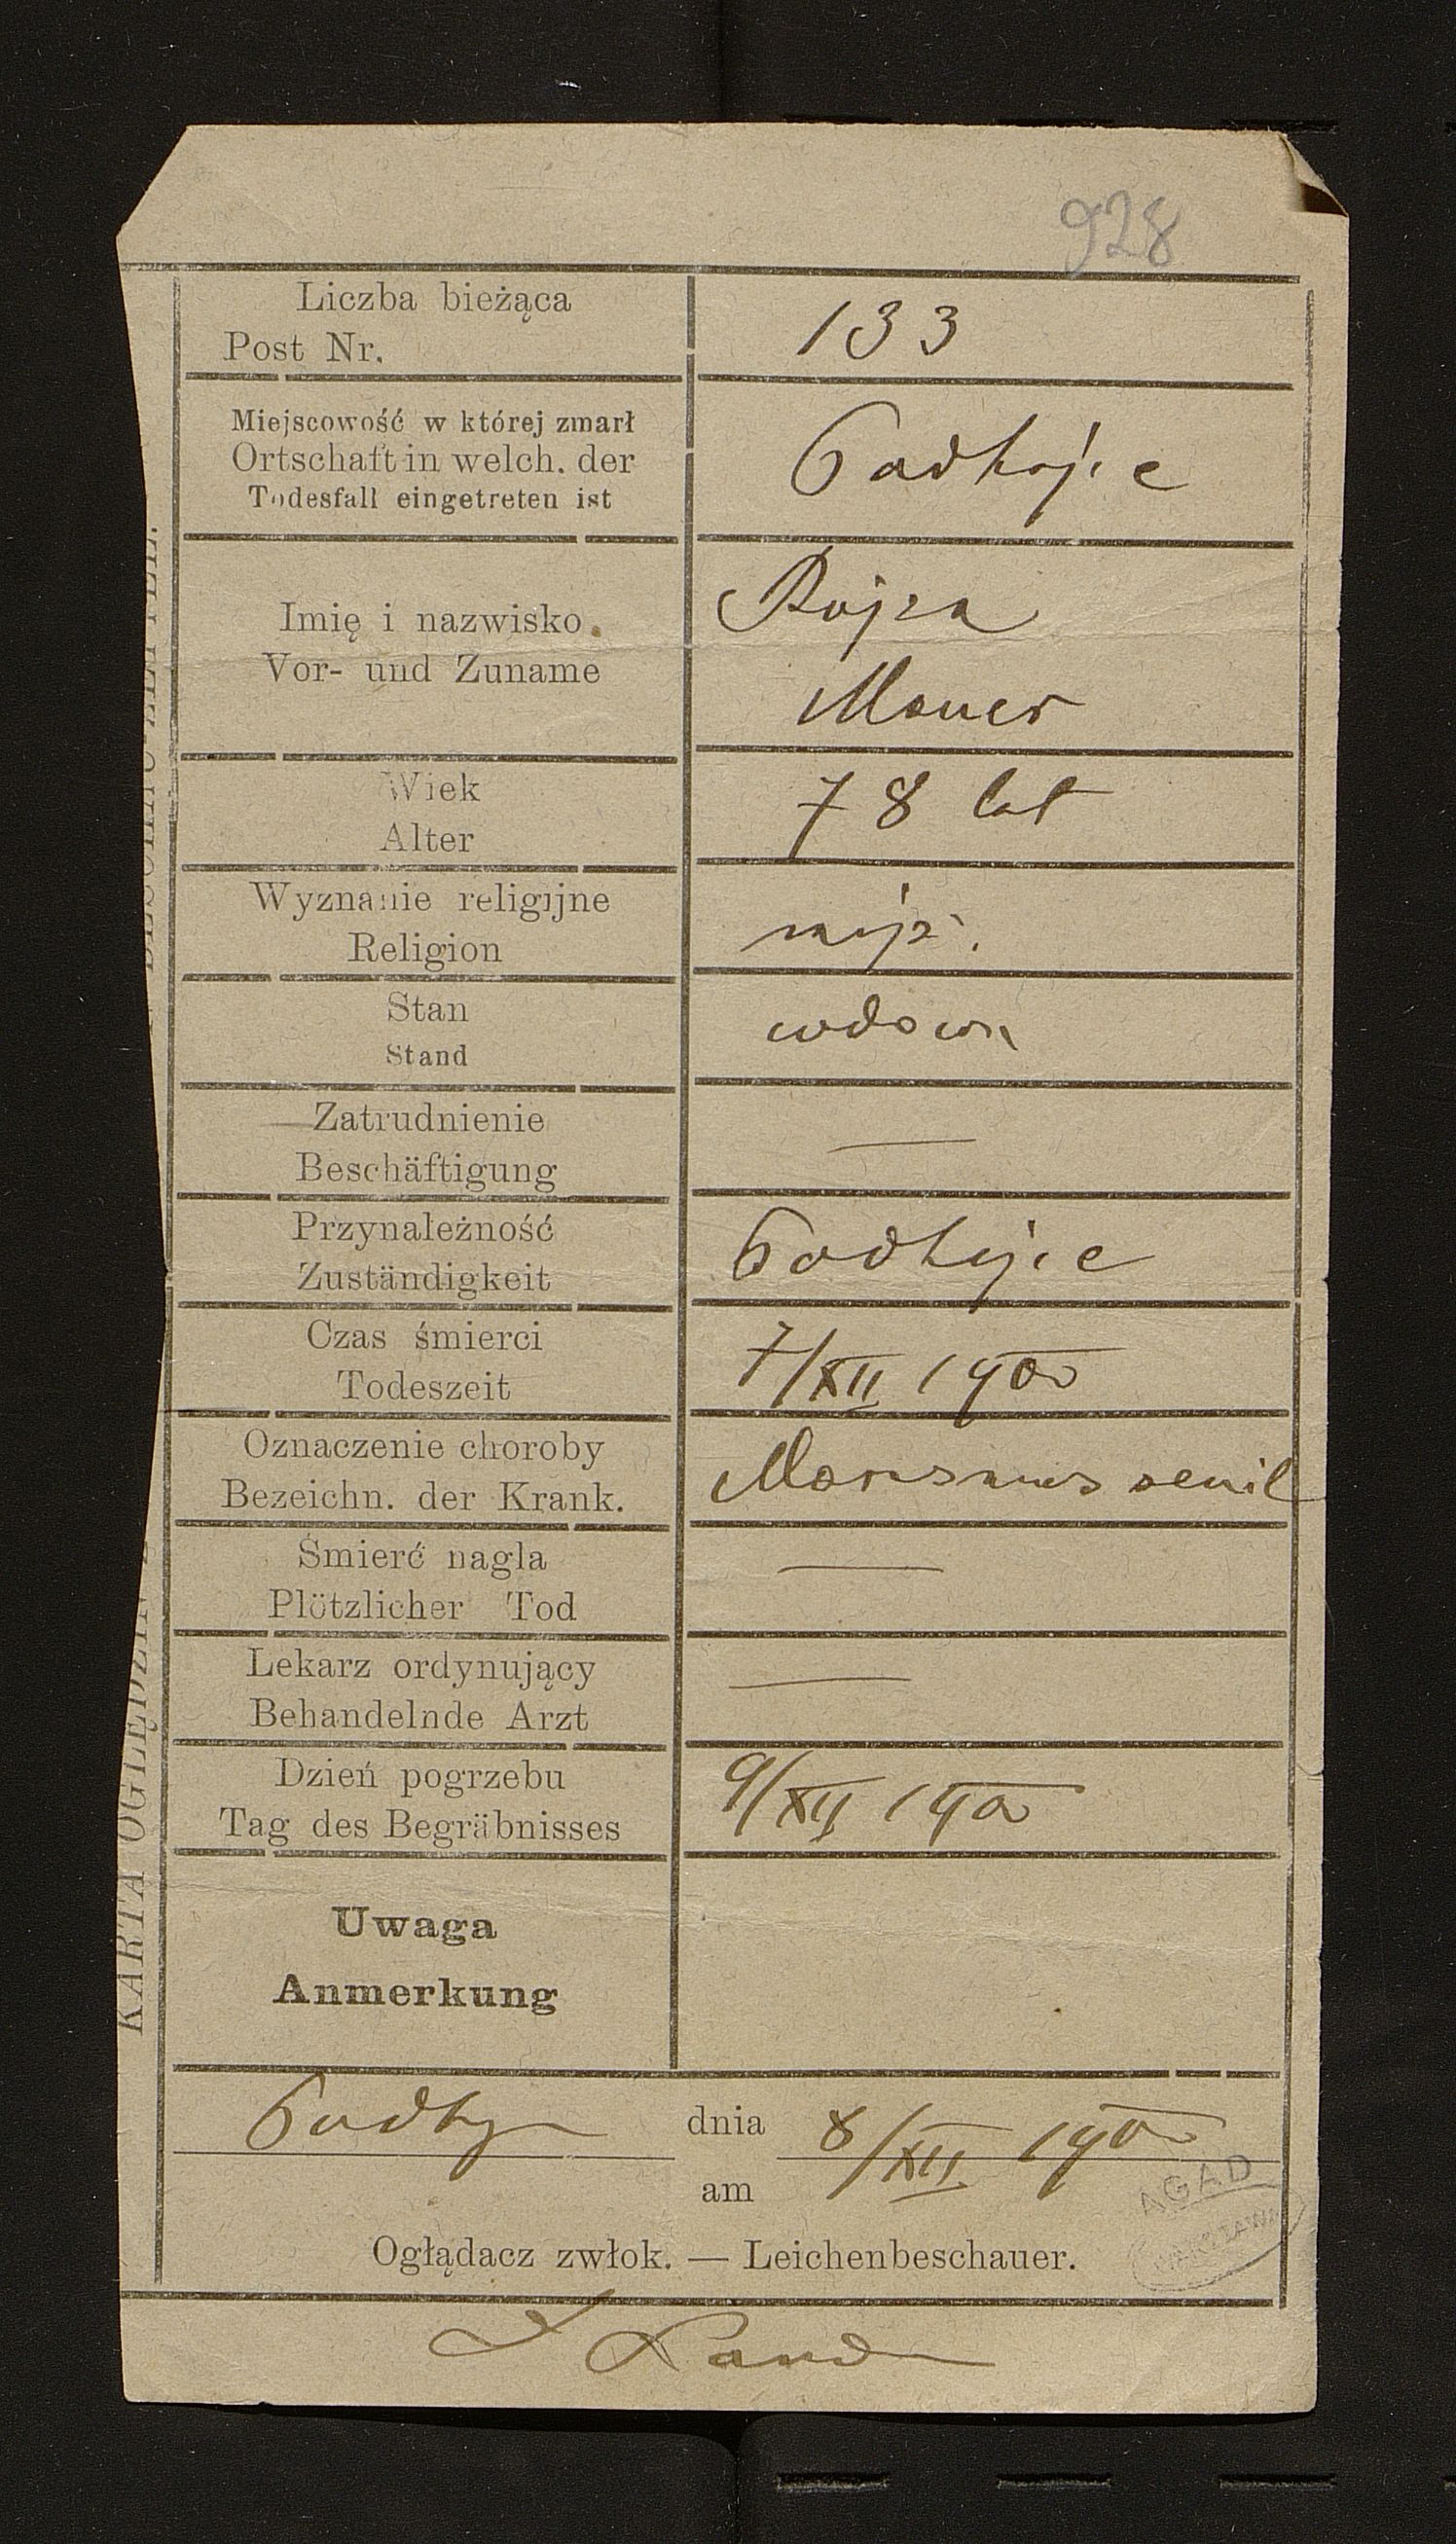 928
Liczba bieżąca
Post Nr.
133
Miejscowość w której zmarł
Ortschaft in welch. der
Todesfall eingetreten ist
Podhajce
Imię i nazwisko
Vor- und Zuname
Rojza
Mauer
Wiek
Alter
78 lat
Wyznanie religijne
Religion
mojż.
Stan
Stand
wdowa
Zatrudnienie
Beschäftigung
—
Przynależność
Zuständigkeit
Podhajce
Czas śmierci
Todeszeit
7/XII 1900
Oznaczenie choroby
Bezeichn. der Krank.
Marasmus senil
Śmierć nagla
Plötzlicher Tod
—
Lekarz ordynujący
Behandelnde Arzt
—
Dzień pogrzebu
Tag des Begräbnisses
9/XII 1900
Uwaga
Anmerkung
Podhaj dnia 8/XII 1900
am
Oglądacz zwłok. — Leichenbeschauer.
KARTA OGLĘDZIN
AGAD
WARSZAWA